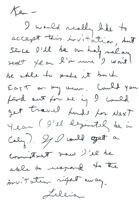 Ken –
I would really like to
accept this invitation, but
since I'll be on half salary
next year I'm sure I won't
be able to make it back
East on my own. Could you
find out for me if I could
get travel funds for next
year (I'll definitely be in
Calif). If I could get a
commitment now I'll be
able to respond to the
invitation right away.
Lillian